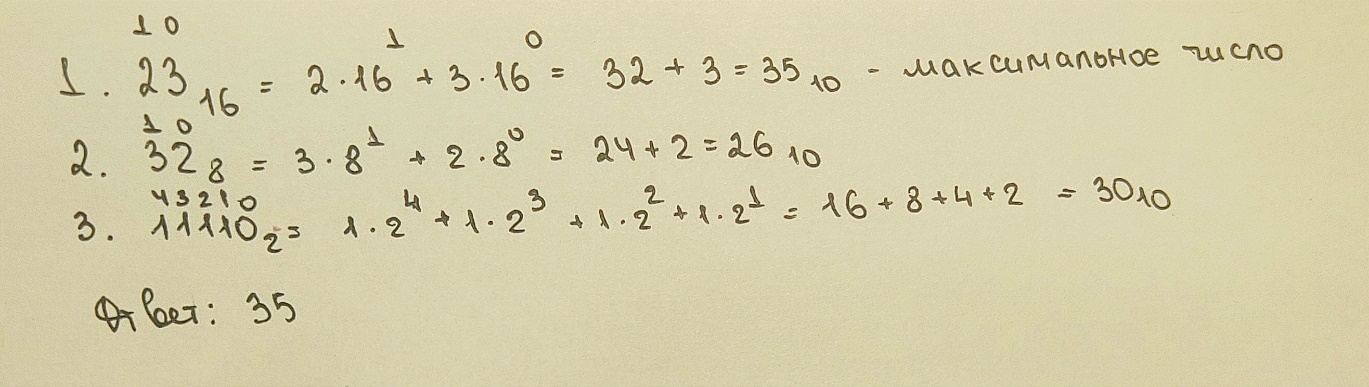 1 0
1. 23₁₆ = 2·16¹ + 3·16⁰ = 32 + 3 = 35₁₀ - максимальное число
1 0
2. 32₈ = 3·8¹ + 2·8⁰ = 24 + 2 = 26₁₀
4 3 2 1 0
3. 11110₂ = 1·2⁴ + 1·2³ + 1·2² + 1·2¹ = 16 + 8 + 4 + 2 = 30₁₀
Ответ: 35